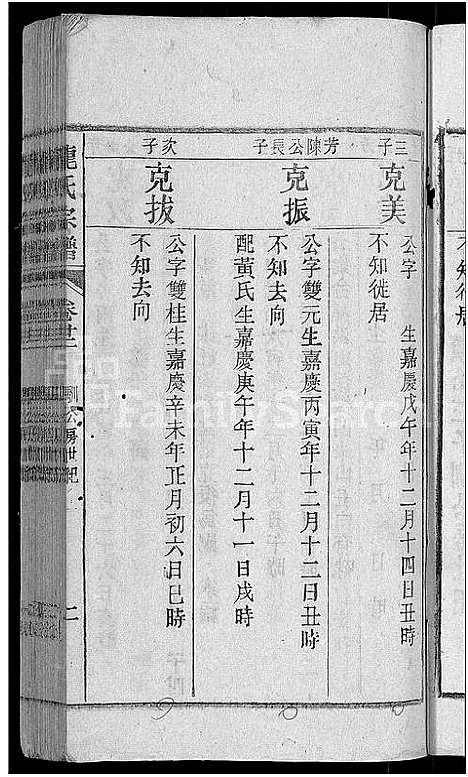 三子
克美
公字　生嘉慶戊午年十二月十四日丑時
不知徙居
芳陳公長子
克振
公字雙元生嘉慶丙寅年十二月十二日丑時
不知去向
配黃氏生嘉慶庚午年十二月十一日戌時
次子
克拔
公字雙桂生嘉慶辛未年正月初六日巳時
不知去向
龍氏宗譜
卷廿二
公房世紀
二
不知徙居
FamilySearch